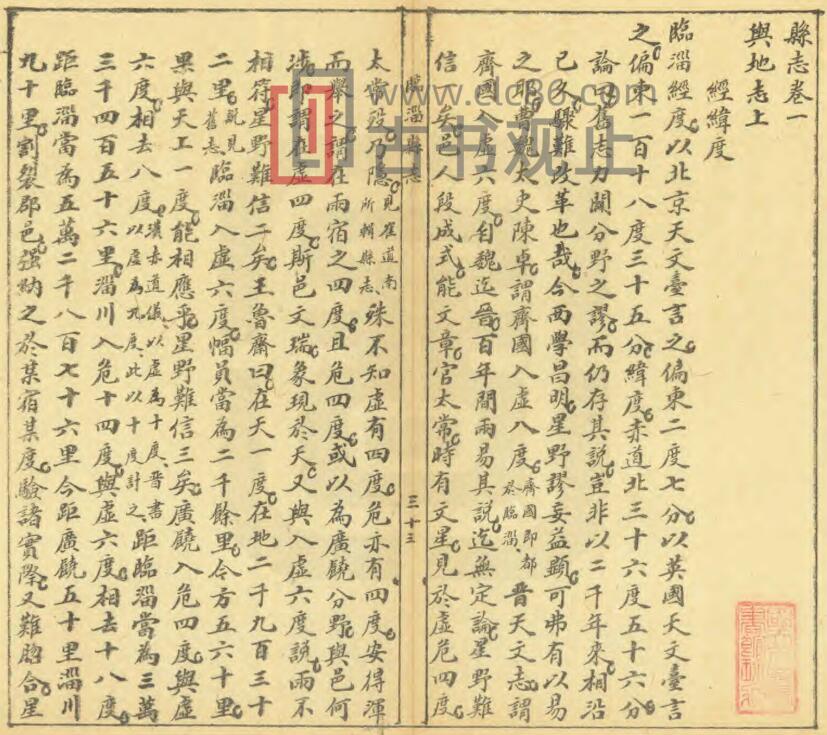 縣志卷一
輿地志上
經緯度
臨淄經度以北京天文臺言之偏東二度七分以英國天文臺言
之偏東一百十八度三十五分緯度赤道北三十六度五十六分
論曰舊志力闢分野之謬而仍存其說豈非以二千年來相沿
已久驟難改革也哉今西學昌明星野謬妄益顯可弗有以易
之耶曹魏太史陳卓謂齊國入虛八度齊國即都於臨淄晉天文志謂
齊國入虛六度自魏迄晉百年間兩易其說迄無定論星野難
信一矣邑人段成式能文章官太常時有文星見於虛危四度
臨淄縣志
三十三
太常歿乃隱見崔道南所輯縣志殊不知虛有四度危亦有四度安得渾
而舉之謂在兩宿之四度且危四度或以為廣饒分野與邑何
涉即謂在虛四度斯邑文瑞象現於天又與入虛六度說兩不
相符星野難信二矣王魯齋曰在天一度在地二千九百三十
二里說見舊志臨淄入虛六度幅員當為二千餘里今方五六十里
果與天工一度能相應乎星野難信三矣廣饒入危四度與虛
六度相去八度漢赤道儀以虛為十度晉書以虛為九度此以十度計之距臨淄當為三萬
三千四百五十六里淄川入危十四度與虛六度相去十八度
距臨淄當為五萬二千八百七十六里今距廣饒五十里淄川
九十里割裂郡邑強納之於某宿某度驗諸實際又難脗合星
www.dc86.com
古书观止